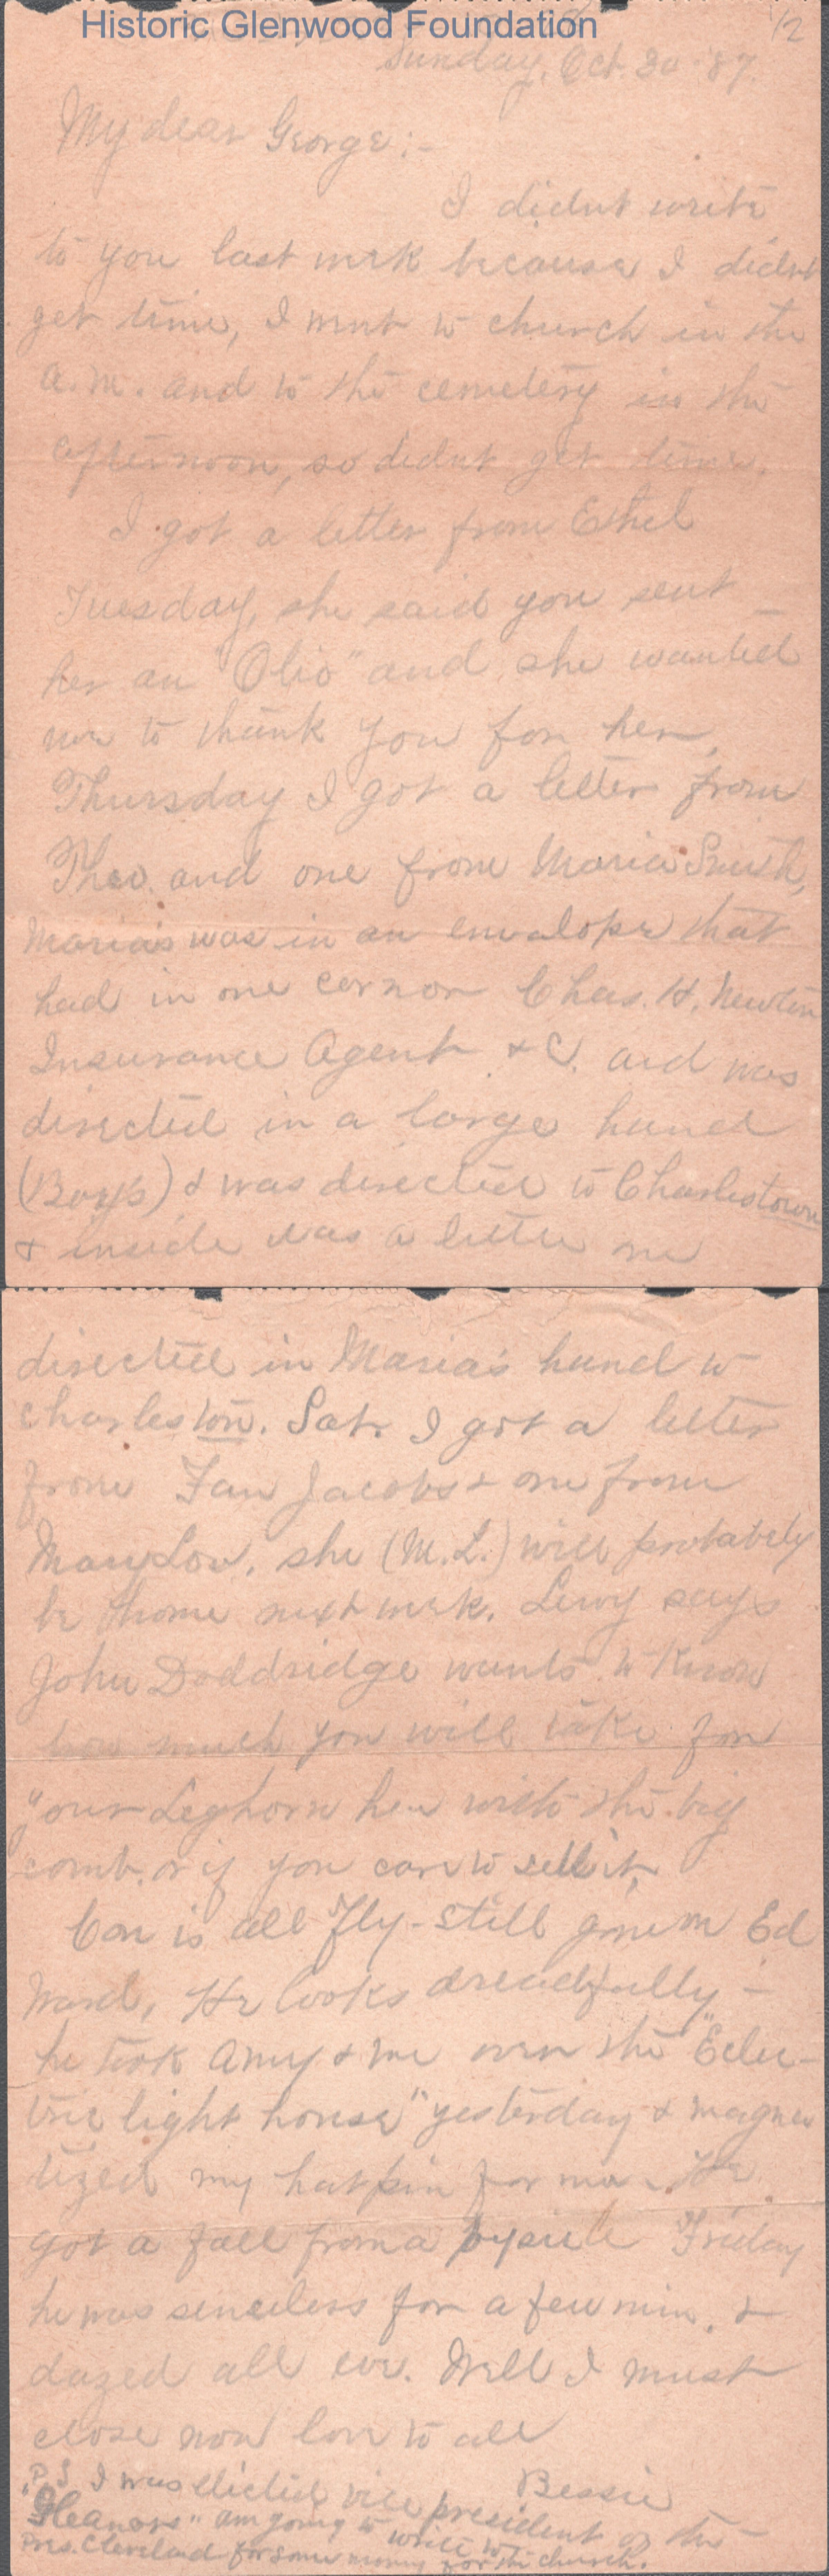 Historic Glenwood Foundation
1/2
Sunday, Oct. 30 '87.
My dear George:-
I didnt write
to you last week because I didnt
get time, I went to church in the
a.m. and to the cemetery in the
afternoon, so didnt get time.
I got a letter from Ethel
Tuesday, she said you sent
her an "Olio" and she wanted
me to thank you for her,
Thursday I got a letter from
Theo. and one from Maria Smith,
Maria's was in an envelope that
had in one cornor Chas. H. Newton
Insurance Agent &C. and was
directed in a large hand
(Boy's) & was directed to Charlestown
& inside was a letter one
directed in Maria's hand to
Charleston. Sat. I got a letter
from Fan Jacobs & one from
Mary Lou, she (M.L.) will probabely
be home next week. Lewy says
John Doddridge wants to know
how much you will take for
your Leghorn hen with the big
comb, or if you care to sell it,
Con is all fly - still gone on Ed
Ward, He looks dreadfully -
he took Amy & me over the "Eclec-
tric light house" yesterday & magne
tized my hatpin for me. He
got a fall from a bysicle Friday
he was senseless for a few min. &
dazed all eve. Well I must
close now love to all
Bessie
P.S I was elected vice president of the
"Gleanors" am going to write to
Mrs. Cleveland for some money for the church.